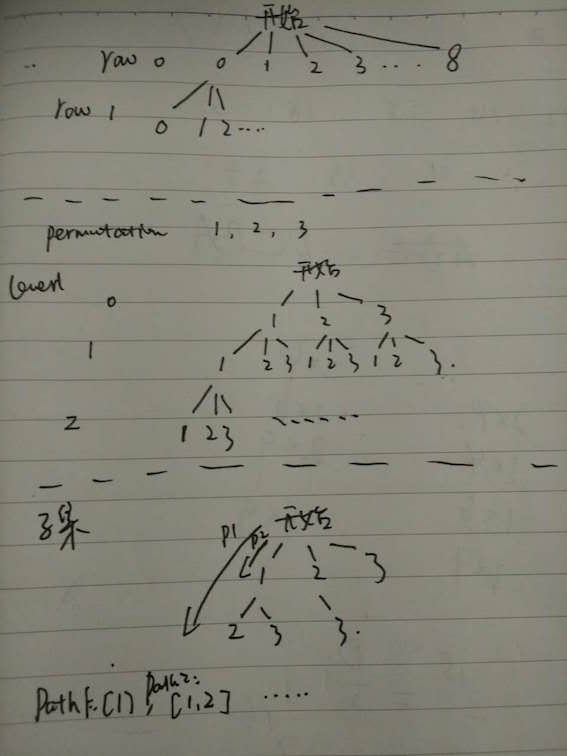 开始
row 0 0 1 2 3 .... 8
row 1 0 1 2 ....
permutation 1, 2, 3
level 0 开始
1 2 3
1 1 2 3 1 2 3 1 2 3.
2 1 2 3 ......
子集 开始
p1 p2 1 2 3
2 3 3.
path1: [1], path2: [1,2] .....